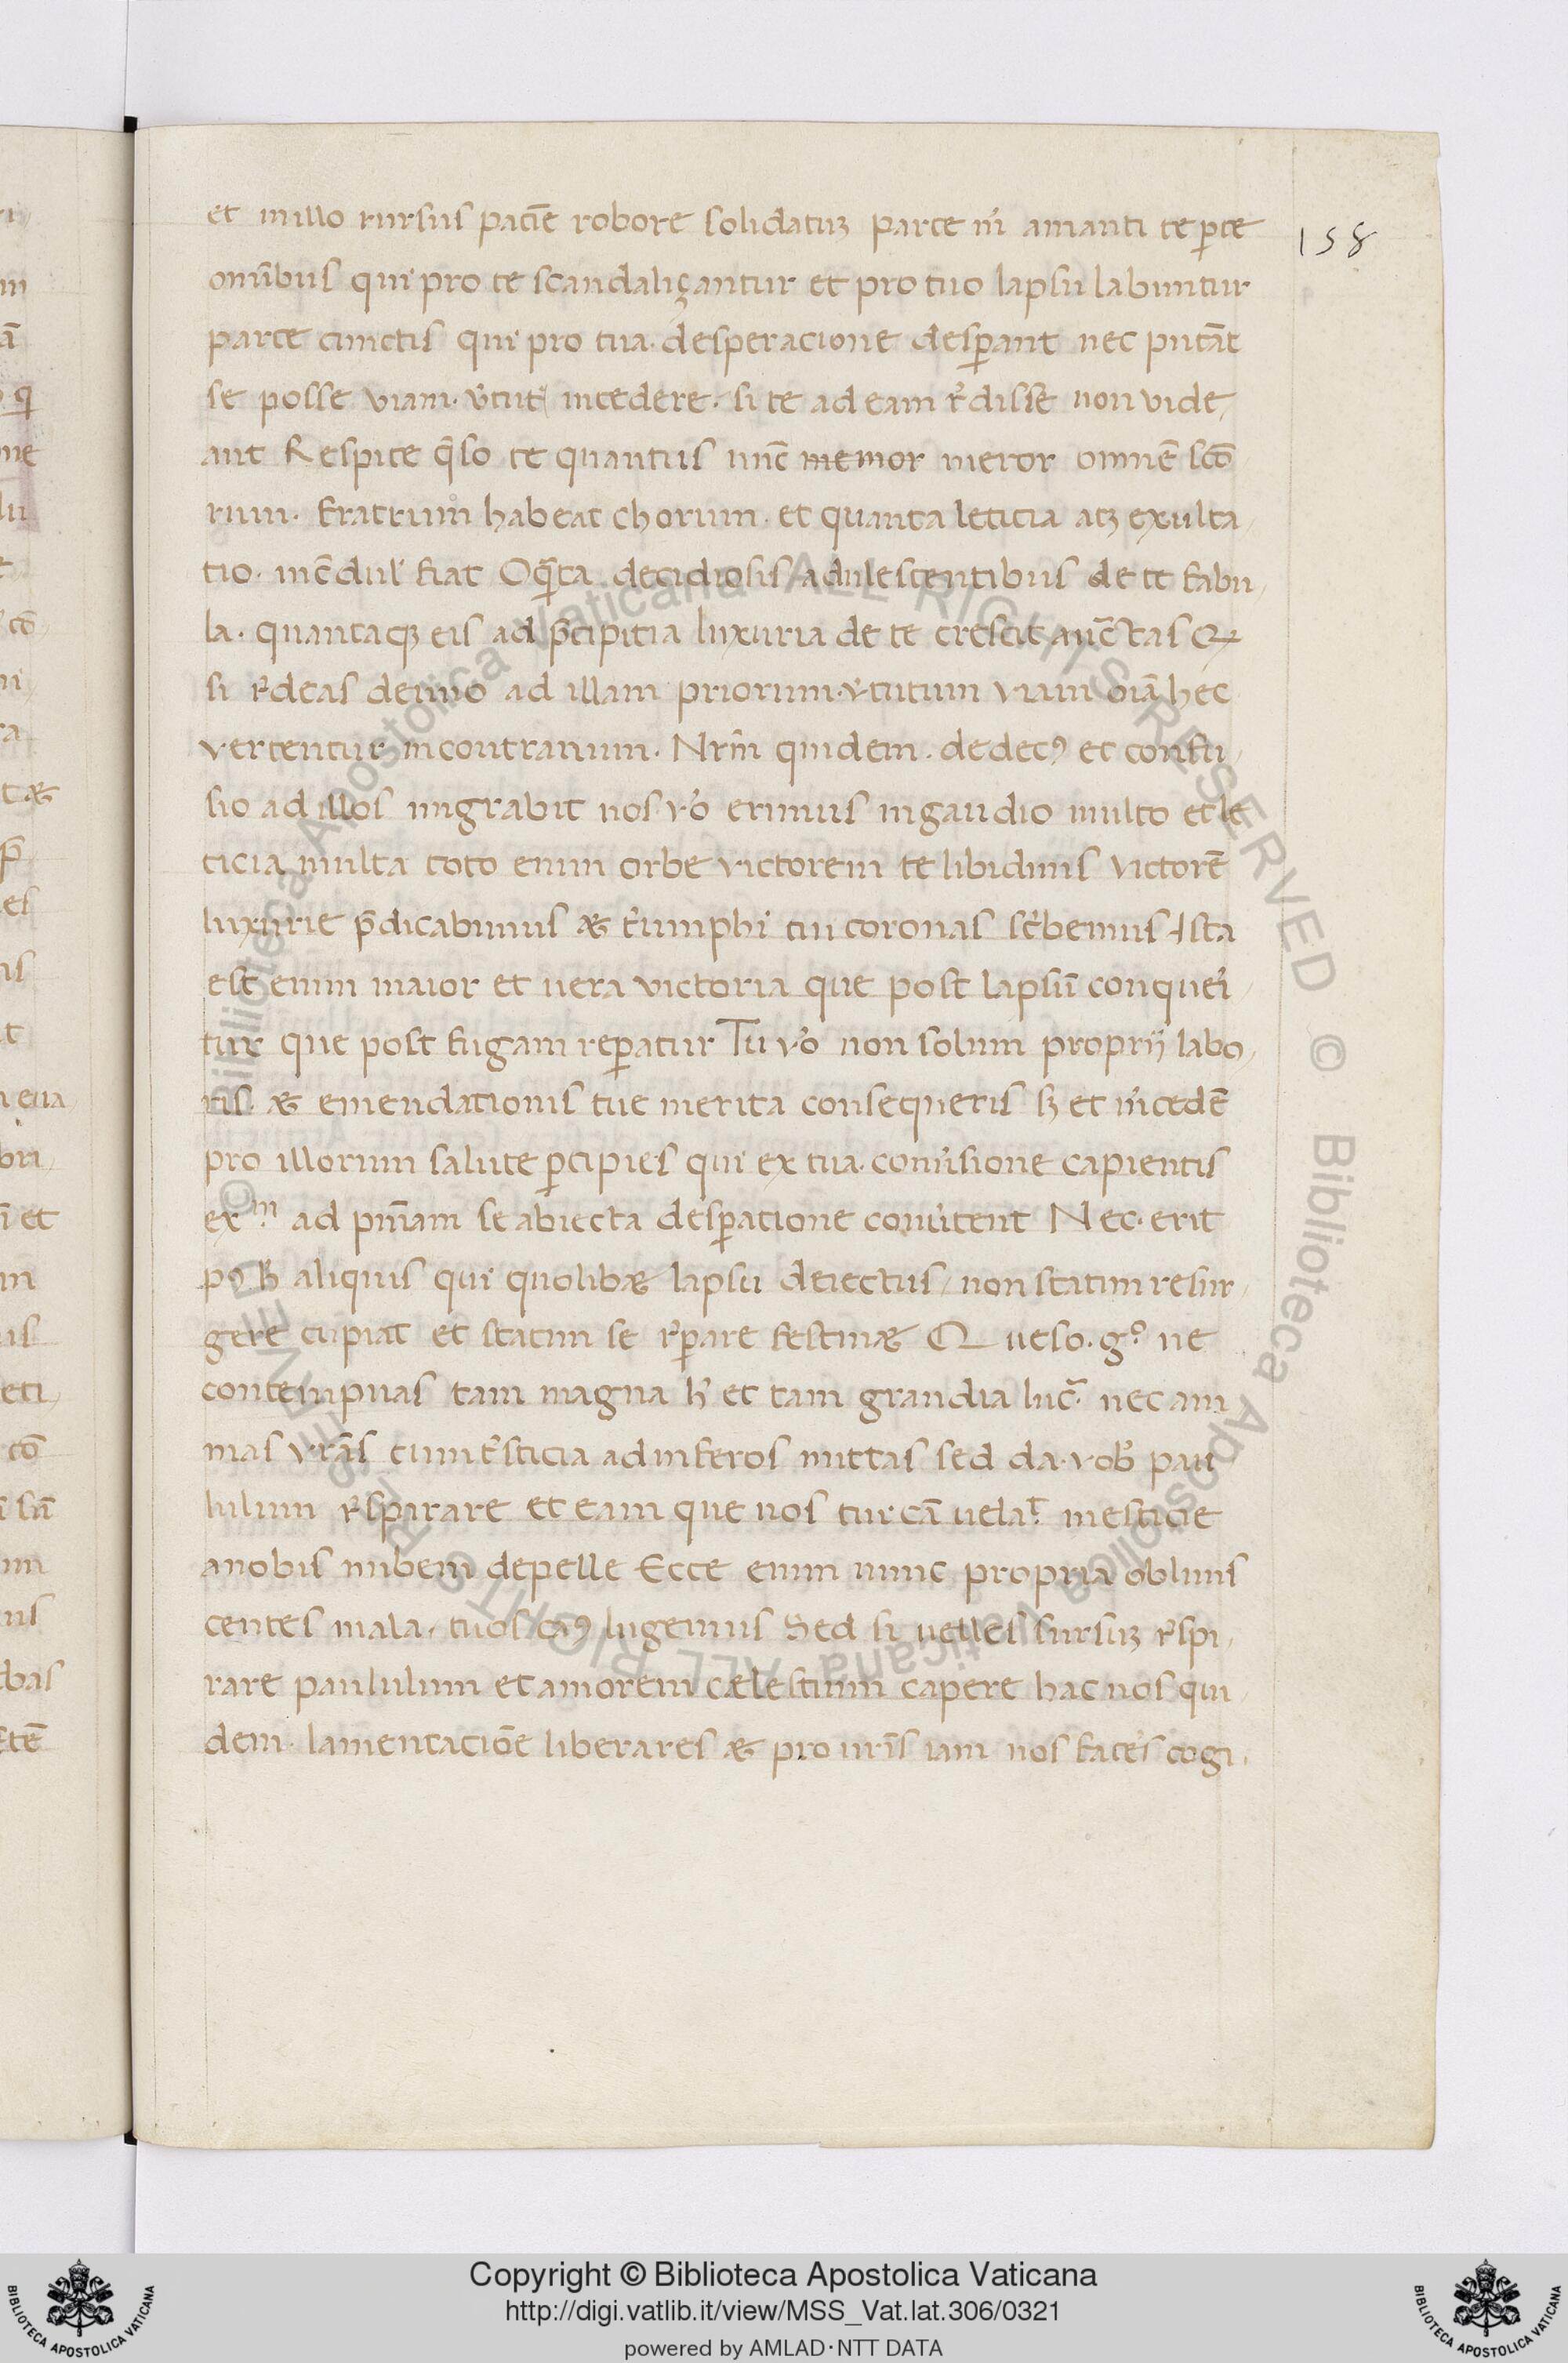 et in illo rursus paciē robore solidatuꝫ parce m̉ amanti te ꝑce
om̄ibus qui pro te scandaliçantur et pro tuo lapsu labuntur
parce cunctis qui pro tua desperacione desꝑant nec putāt
se posse viam v̉tut̉ incedere. si te ad eam r̉disse non vide
ant Respice q̄so te quantus nūc memor meror omnē sc̄o
rum. fratrum habeat chorum. et quanta leticia atꝫ exulta
tio. incēdul̉ fiat O q̄ta decidiosis adulescentibus de te fabu
la. quantaqꝫ eis ad p̄cipitia luxuria de te crescit auc̄tas Q
si r̉deas denuo ad illam priorum v̉tutum viam oīa hec
vertentur in contrarium. Nr̄m quidem. dedecꝯ et confu
sio ad illos migrabit nos v̉o erimus in gaudio multo et le
ticia multa toto enim orbe victorem te libidinis victorē
luxurie p̄dicabimus & t̉umphi tui coronas sc̉bemus Ista
est enim maior et uera victoria que post lapsū conqueỉ
tur que post fugam reꝑatur Tu v̉o non solum proprij labo
ris. & emendationis tue merita consequeris sꝫ et m̉cedē
pro illorum salute ꝑcipies qui ex tua. conủsione capientis
exᵐ. ad pn̄iam se abiecta desꝑacione conủtent Nec. erit
aliquis qui quolib& lapsu deiectus, non statim resur
gere cupiat et statim se r̉ꝑare festin& Q ueso. gͦ. ne
contempnas tam magna h̉ et tam grandia luc̄. nec ani
mas vr̄as cum t̉sticia ad inferos mittas sed da. nob̉ pau
lulum r̉spirare et eam que nos turcā uelat̉ mesticie
a nobis nubem depelle Ecce enim nunc propria obliuis
centes mala, tuos caꝯ lugemus Sed si uelles sursuꝫ r̉spi
rare paululum et amorem cælestium capere hac nos qui
dem. lamentaciōe liberares & pro nr̄is iam nos facer̉s cogi
158
Copyright © Biblioteca Apostolica Vaticana
http://digi.vatlib.it/view/MSS_Vat.lat.306/0321
powered by AMLAD·NTT DATA